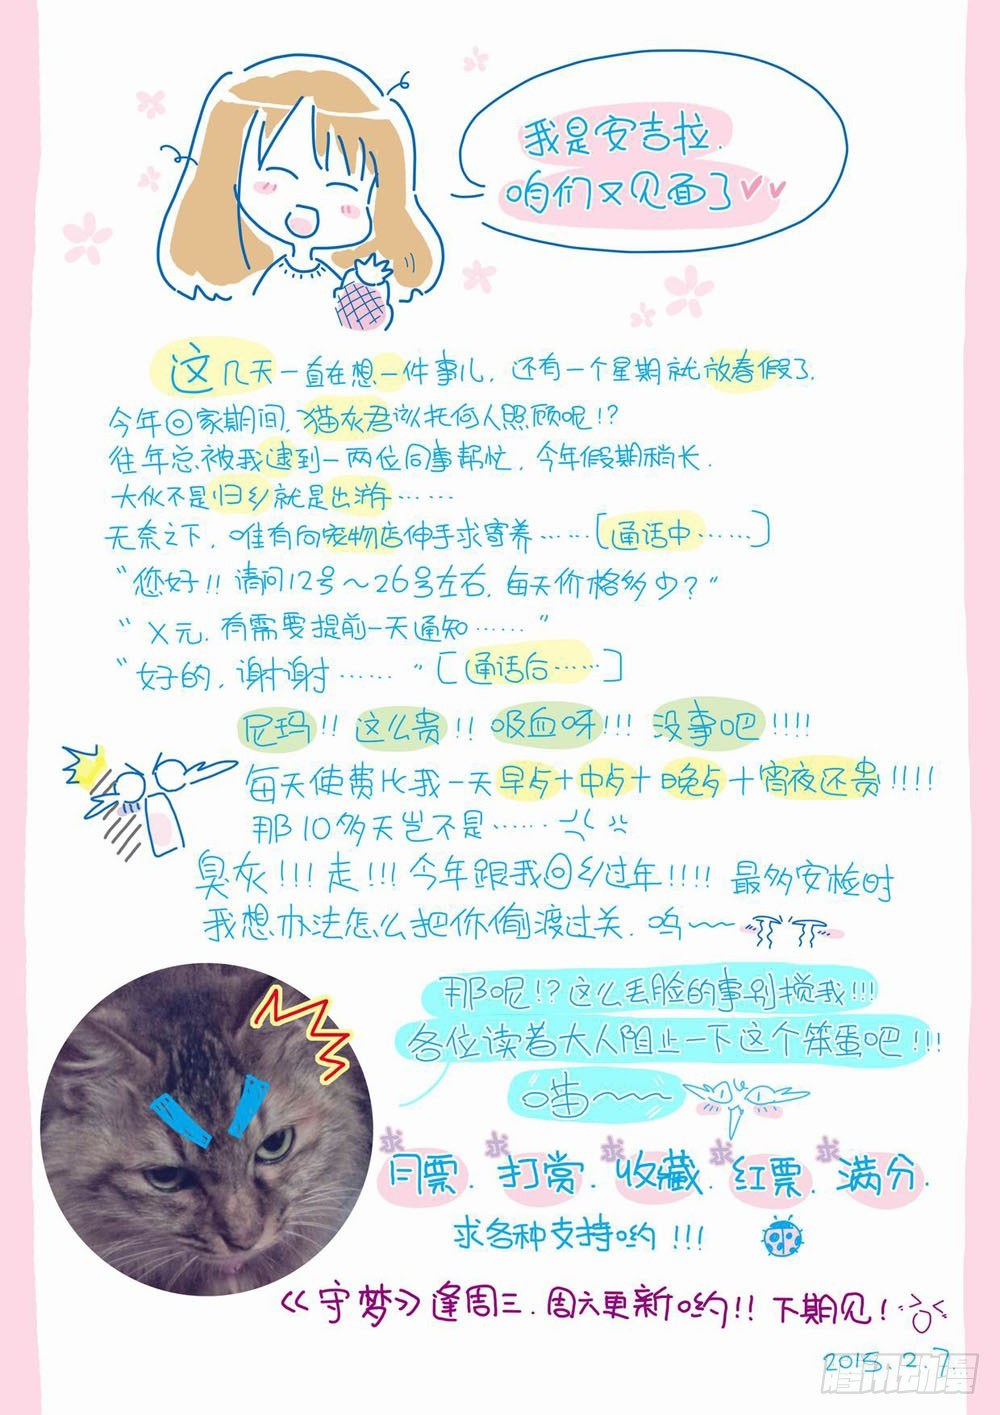 我是安吉拉.
咱们又见面了
这几天一直在想一件事儿, 还有一个星期就放春假了.
今年回家期间, 猫灰君该托何人照顾呢!?
往年总被我逮到一两位同事帮忙, 今年假期稍长.
大伙不是归乡就是出游……
无奈之下, 唯有向宠物店伸手求寄养……[通话中……]
“您好!! 请问12号～26号左右, 每天价格多少?”
“X元. 有需要提前一天通知……”
“好的, 谢谢……” [通话后……]
尼玛!! 这么贵!! 吸血呀!!! 没事吧!!!!
每天使费比我一天早点+中点+晚点+宵夜还贵!!!!
那10多天岂不是……
臭灰!!! 走!!! 今年跟我回乡过年!!!! 最多安检时
我想办法怎么把你偷渡过关. 呜~~
那呢!? 这么丢脸的事别搅我!!!
各位读者大人阻止一下这个笨蛋吧!!!
喵~~~
求月票. 求打赏. 求收藏. 求红票. 求满分.
求各种支持哟!!!
《守梦》逢周三. 周六更新哟!! 下期见!
2015.2.7.
腾讯动漫